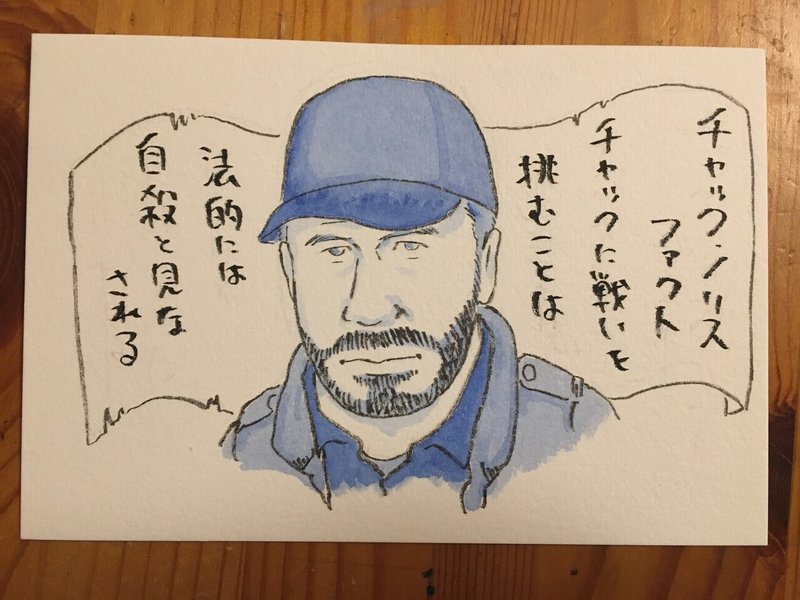 チャックノリス
ファクト
チャックに戦いを
挑むことは
法的には
自殺と見な
される